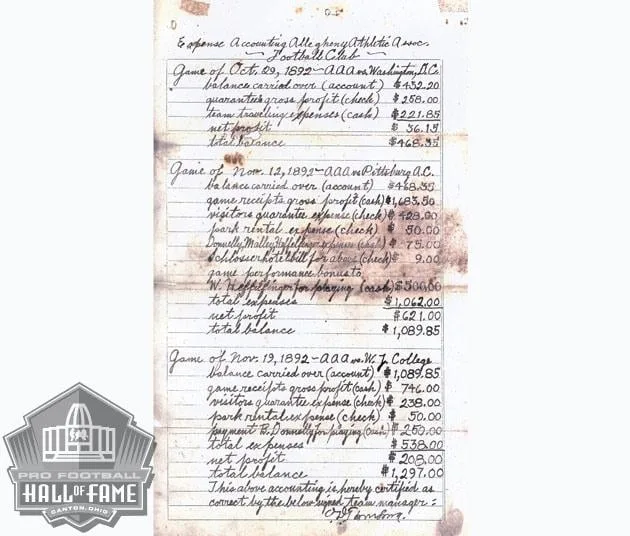 Expense Accounting Allegheny Athletic Assoc.
Football Club
Game of Oct. 29, 1892 - AAA vs. Washington, D.C.
balance carried over (account) $432.20
guarantee gross profit (check) $258.00
team traveling expenses (cash) $221.85
net profit $36.15
total balance $468.35
Game of Nov. 12, 1892 - AAA vs Pittsburg A.C.
balance carried over (account) $468.35
game receipts gross profit (cash) $1,683.50
visitors guarantee expense (check) $428.00
park rental expense (check) $50.00
Donnelly, Malley, Heffelfinger expenses (cash) $75.00
Schlosser Hotel bill for above (check) $9.00
game performance bonus to
W. Heffelfinger for playing (cash) $500.00
total expenses $1,062.00
net profit $621.00
total balance $1,089.85
Game of Nov. 19, 1892 - AAA vs. W. J. College
balance carried over (account) $1,089.85
game receipts gross profit (cash) $746.00
visitors guarantee expense (check) $238.00
park rental expense (check) $50.00
payment B. Donnelly for playing (cash) $250.00
total expenses $538.00
net profit $208.00
total balance $1,297.00
This above accounting is hereby certified as
correct by the below signed team manager:
PRO FOOTBALL
HALL OF FAME
CANTON, OHIO